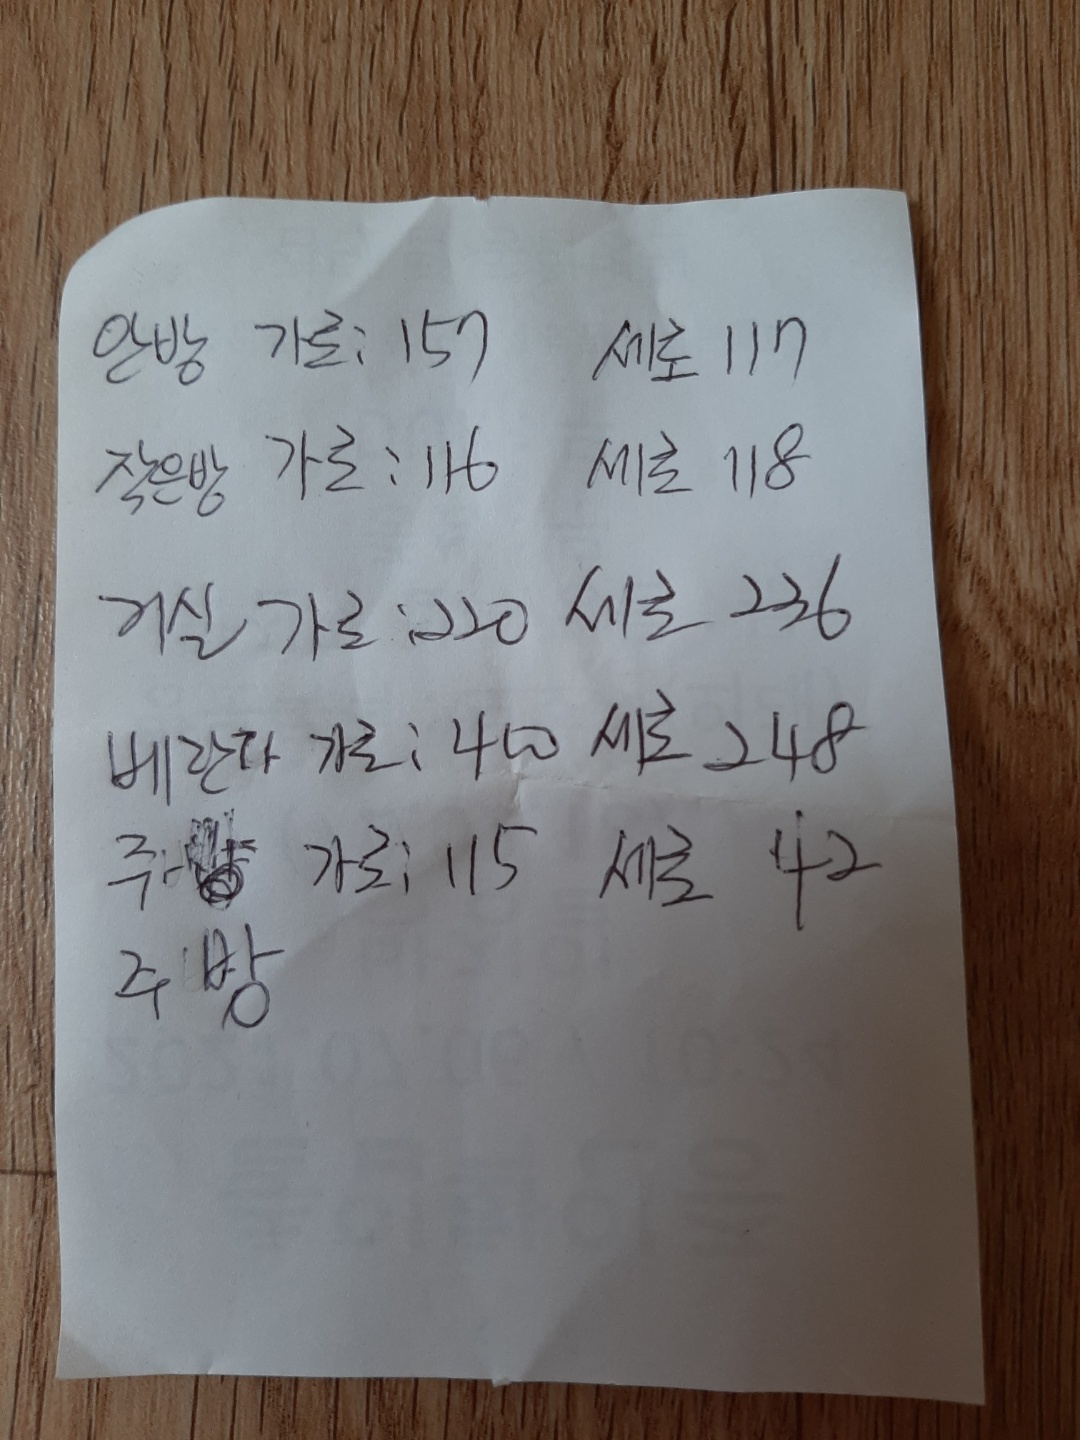 안방 가로: 157 세로 117
작은방 가로: 116 세로 118
거실 가로: 220 세로 236
베란다 가로: 세로 248
주방 가로: 115 세로 42
주방